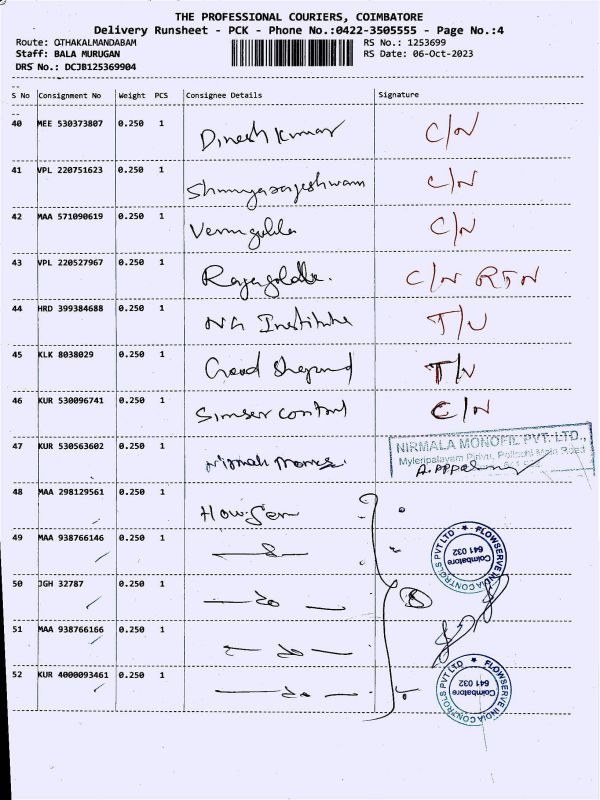 THE PROFESSIONAL COURIERS, COIMBATORE
Delivery Runsheet - PCK - Phone No.:0422-3505555 - Page No.:4
Route: OTHAKALMANDABAM RS No.: 1253699
Staff: BALA MURUGAN RS Date: 06-Oct-2023
DRS No.: DCJB125369904
S No Consignment No Weight PCS Consignee Details Signature
40 MEE 530373807 0.250 1 Dinesh Kumar C/N
41 VPL 220751623 0.250 1 C/N
42 MAA 571090619 0.250 1 C/N
43 VPL 220527967 0.250 1 C/N RTN
44 HRD 399384688 0.250 1 NG Institute T/V
45 KLK 8038029 0.250 1 T/V
46 KUR 530096741 0.250 1 C/N
NIRMALA MONOFIL PVT. LTD.,
Myleripalayam Pirivu, Pollachi Main Road
47 KUR 530563602 0.250 1
48 MAA 298129561 0.250 1
49 MAA 938766146 0.250 1
FLOWSERVE INDIA CONTROLS PVT LTD
Coimbatore
641 032
50 JGH 32787 0.250 1
51 MAA 938766166 0.250 1
52 KUR 4000093461 0.250 1
FLOWSERVE INDIA CONTROLS PVT LTD
Coimbatore
641 032